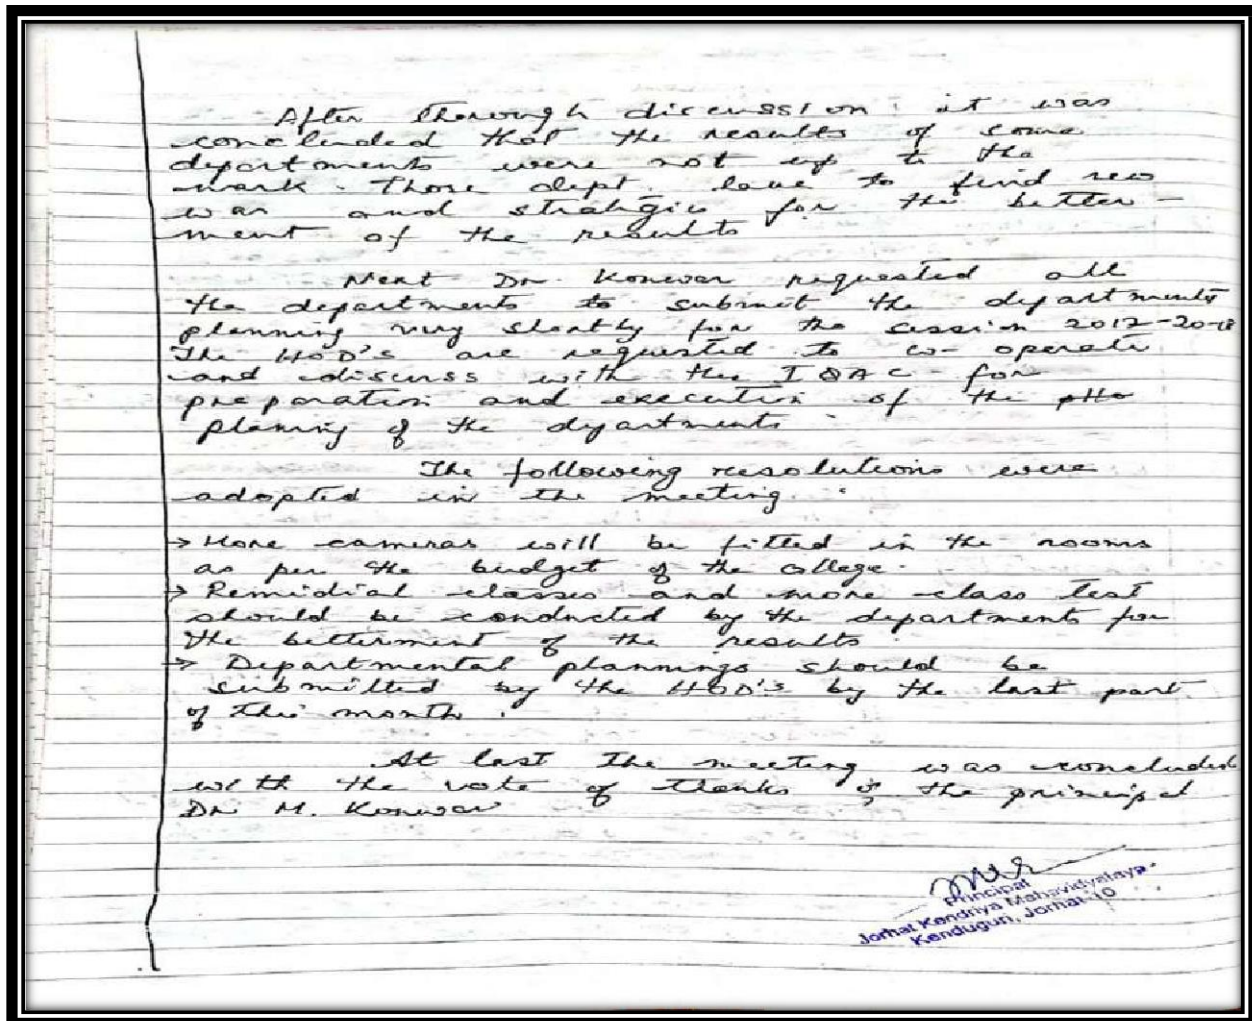 After thorough discussion it was
concluded that the results of some
departments were not up to the
mark. Those dept. have to find new
was and strategies for the better-
ment of the results
Next Dr. Konwar requested all
the departments to submit the departments
planning very shortly for the session 2017-2018
The HOD's are requested to co-operate
and discuss with the IQAC for
preparation and execution of the
planing of the departments
The following resolutions were
adopted in the meeting.
→ More cameras will be fitted in the rooms
as per the budget of the college.
→ Remidial classes and more class test
should be conducted by the departments for
the betterment of the results
→ Departmental plannings should be
submitted by the HOD's by the last part
of this month.
At last the meeting was concluded
with the vote of thanks of the principal
Dr M. Konwar
Principal
Jorhat Kendriya Mahavidyalaya
Kenduguri, Jorhat-10